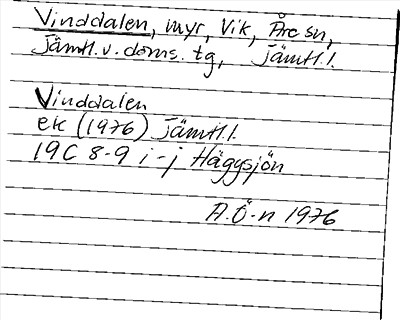 Vinddalen, myr, Vik, Åre sn,
Jämtl. v. doms. tg, Jämtl. l.
Vinddalen
ek (1976) Jämtl. l.
19C 8-9 i-j Häggsjön
A.Ö-n 1976